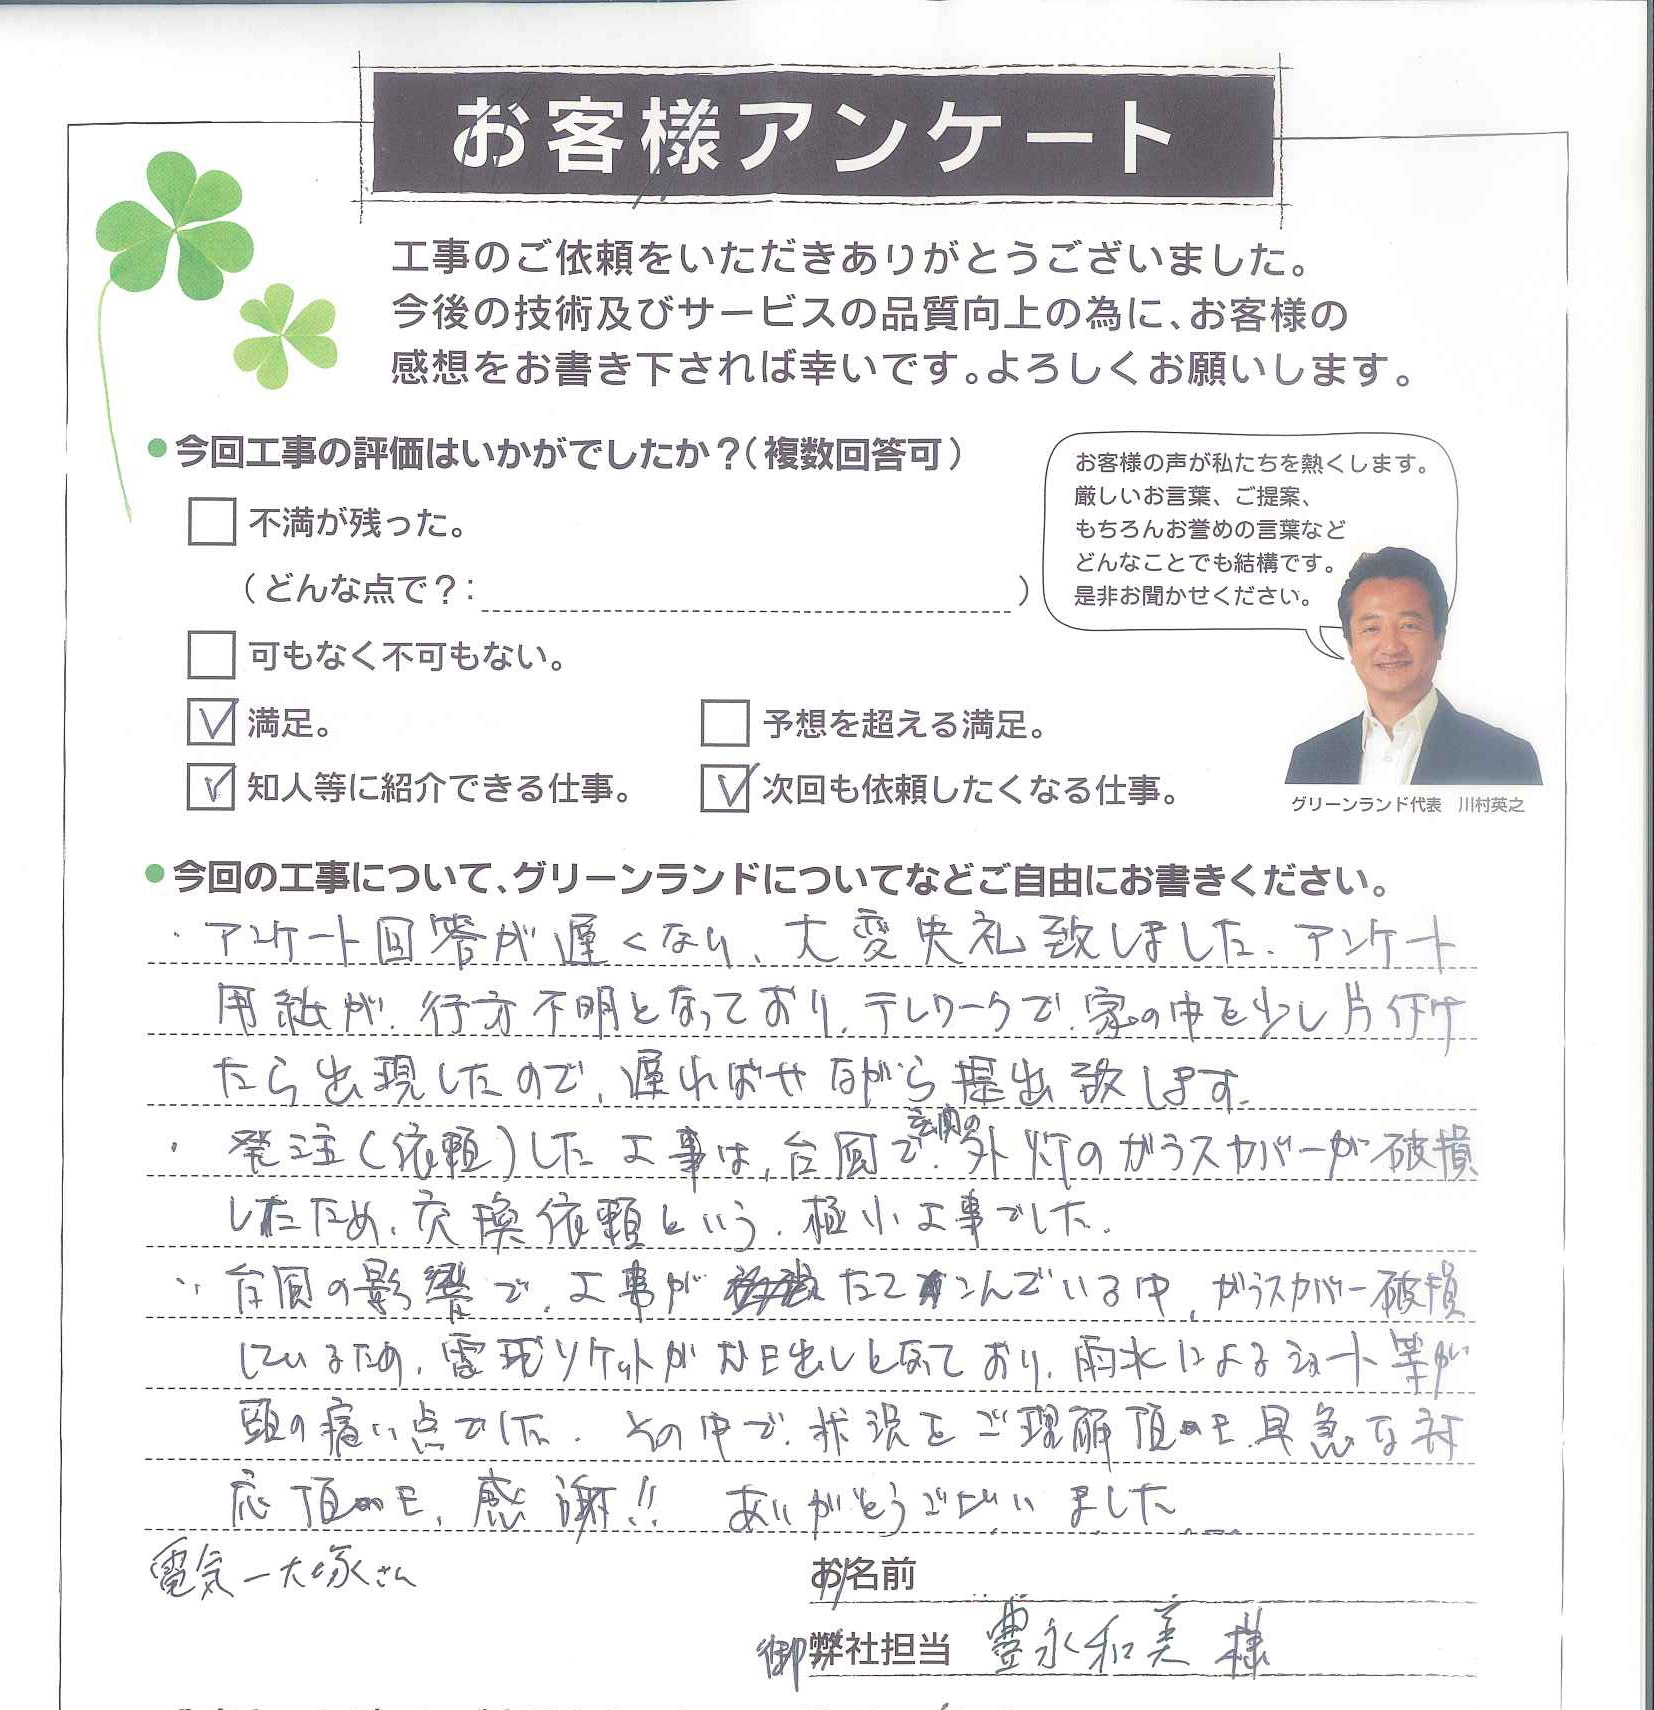 お客様アンケート
工事のご依頼をいただきありがとうございました。
今後の技術及びサービスの品質向上の為に、お客様の
感想をお書き下されば幸いです。よろしくお願いします。
●今回工事の評価はいかがでしたか？(複数回答可)
不満が残った。
(どんな点で？: )
可もなく不可もない。
満足。
予想を超える満足。
知人等に紹介できる仕事。
次回も依頼したくなる仕事。
お客様の声が私たちを熱くします。
厳しいお言葉、ご提案、
もちろんお誉めの言葉など
どんなことでも結構です。
是非お聞かせください。
グリーンランド代表 川村英之
●今回の工事について、グリーンランドについてなどご自由にお書きください。
・アンケート回答が遅くなり、大変失礼致しました。アンケート
用紙が、行方不明となっており、テレワークで、家の中を少し片付け
たら出現したので、遅ればせながら提出致します。
・発注(依頼)した工事は、台風で、玄関の外灯のガラスカバーが破損
したため、交換依頼という、極小工事でした。
・台風の影響で、工事がたてこんでいる中、ガラスカバー破損
しているため、電球ソケットがむき出しとなっており、雨水によるショート等が
頭の痛い点でした。その中で、状況をご理解頂き、早急な対
応頂き、感謝!! ありがとうございました
電気－大塚さん
お名前
御弊社担当 豊永和美 様